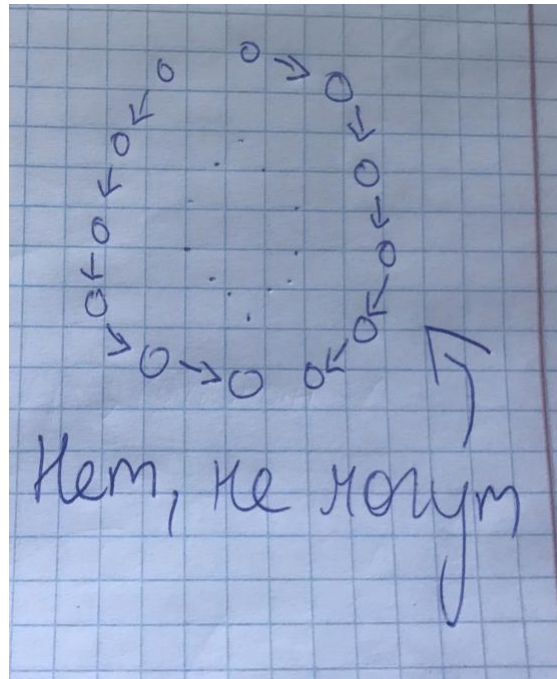 Нет, не могут